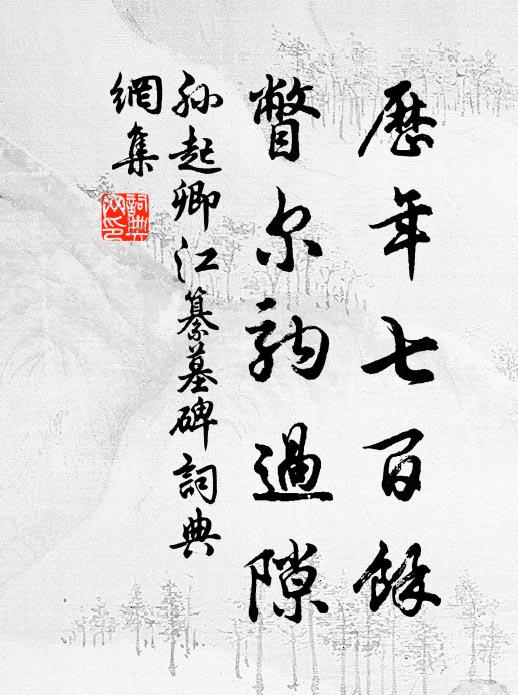 歷年七百餘
瞥尔駒過隙
孫起卿江纂墓碑詞典
網集
詞典
网印